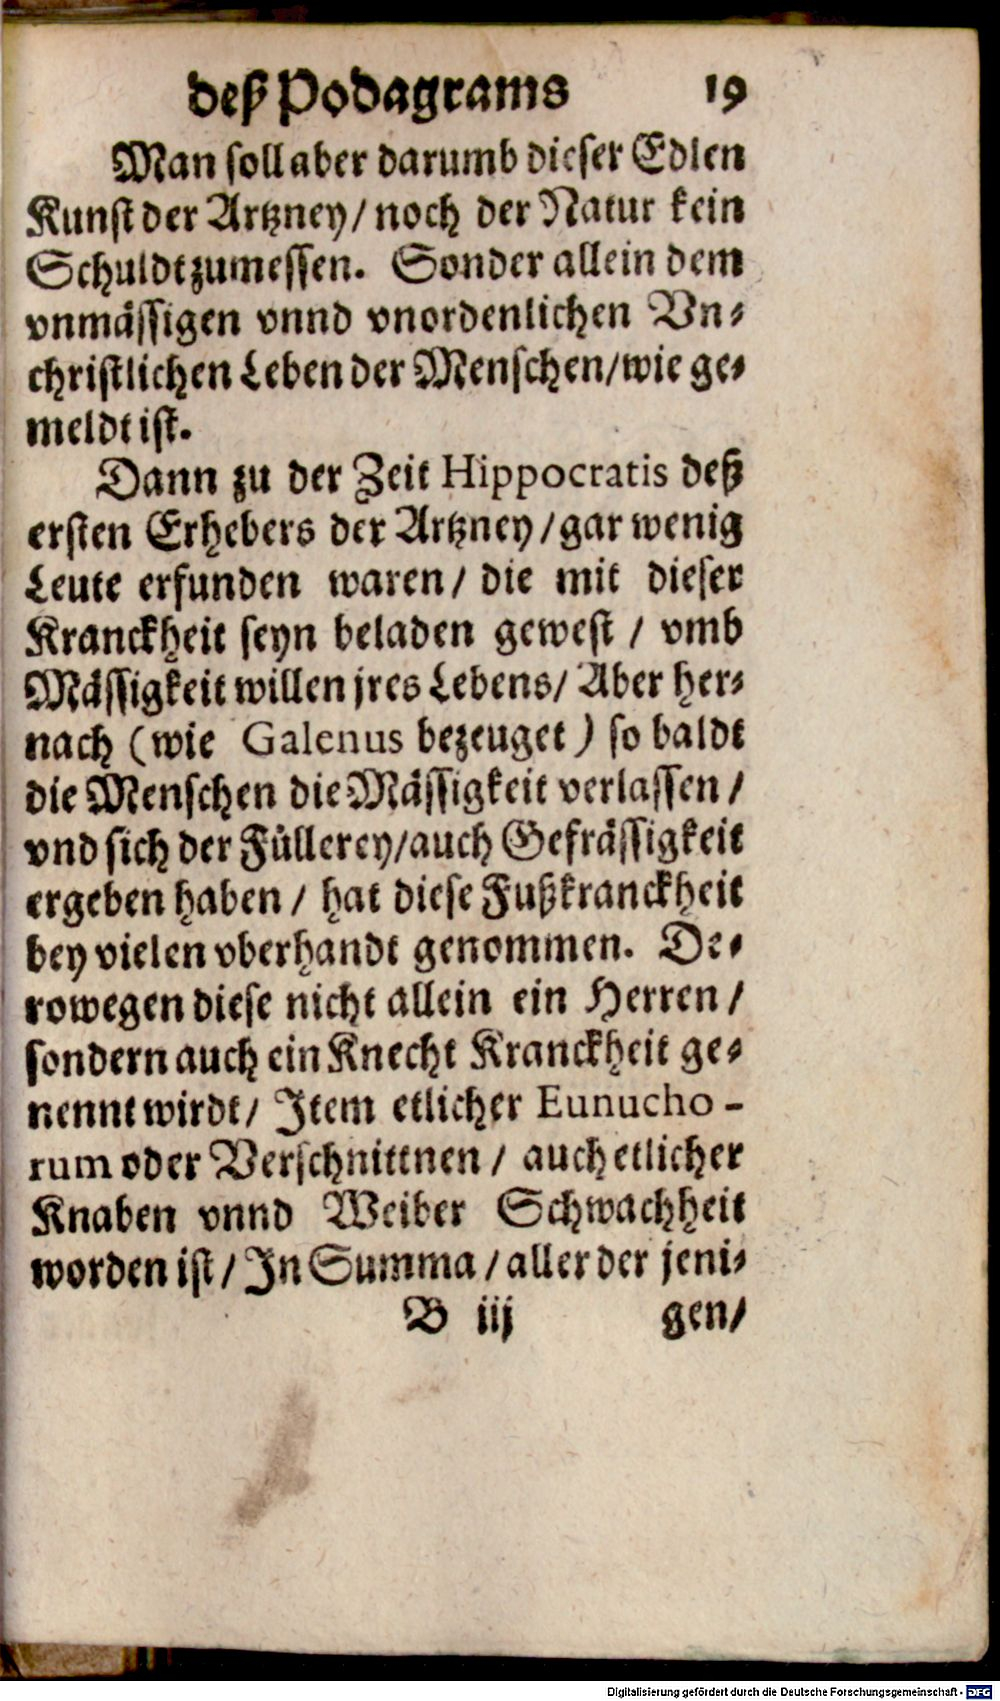 deß Podagrams 19
Man soll aber darumb dieser Edlen
Kunst der Artzney / noch der Natur kein
Schuldt zumessen. Sonder allein dem
vnmässigen vnnd vnordenlichen Vn⸗
christlichen Leben der Menschen / wie ge⸗
meldt ist.
Dann zu der Zeit Hippocratis deß
ersten Erhebers der Artzney / gar wenig
Leute erfunden waren / die mit dieser
Kranckheit seyn beladen gewest / vmb
Mässigkeit willen jres Lebens / Aber her⸗
nach (wie Galenus bezeuget) so baldt
die Menschen die Mässigkeit verlassen /
vnd sich der Füllerey / auch Gefrässigkeit
ergeben haben / hat diese Fußkranckheit
bey vielen vberhandt genommen. De⸗
rowegen diese nicht allein ein Herren /
sondern auch ein Knecht Kranckheit ge⸗
nennt wirdt / Item etlicher Eunucho-
rum oder Verschnittnen / auch etlicher
Knaben vnnd Weiber Schwachheit
worden ist / In Summa / aller der jeni⸗
B iij gen /
Digitalisierung gefördert durch die Deutsche Forschungsgemeinschaft - DFG